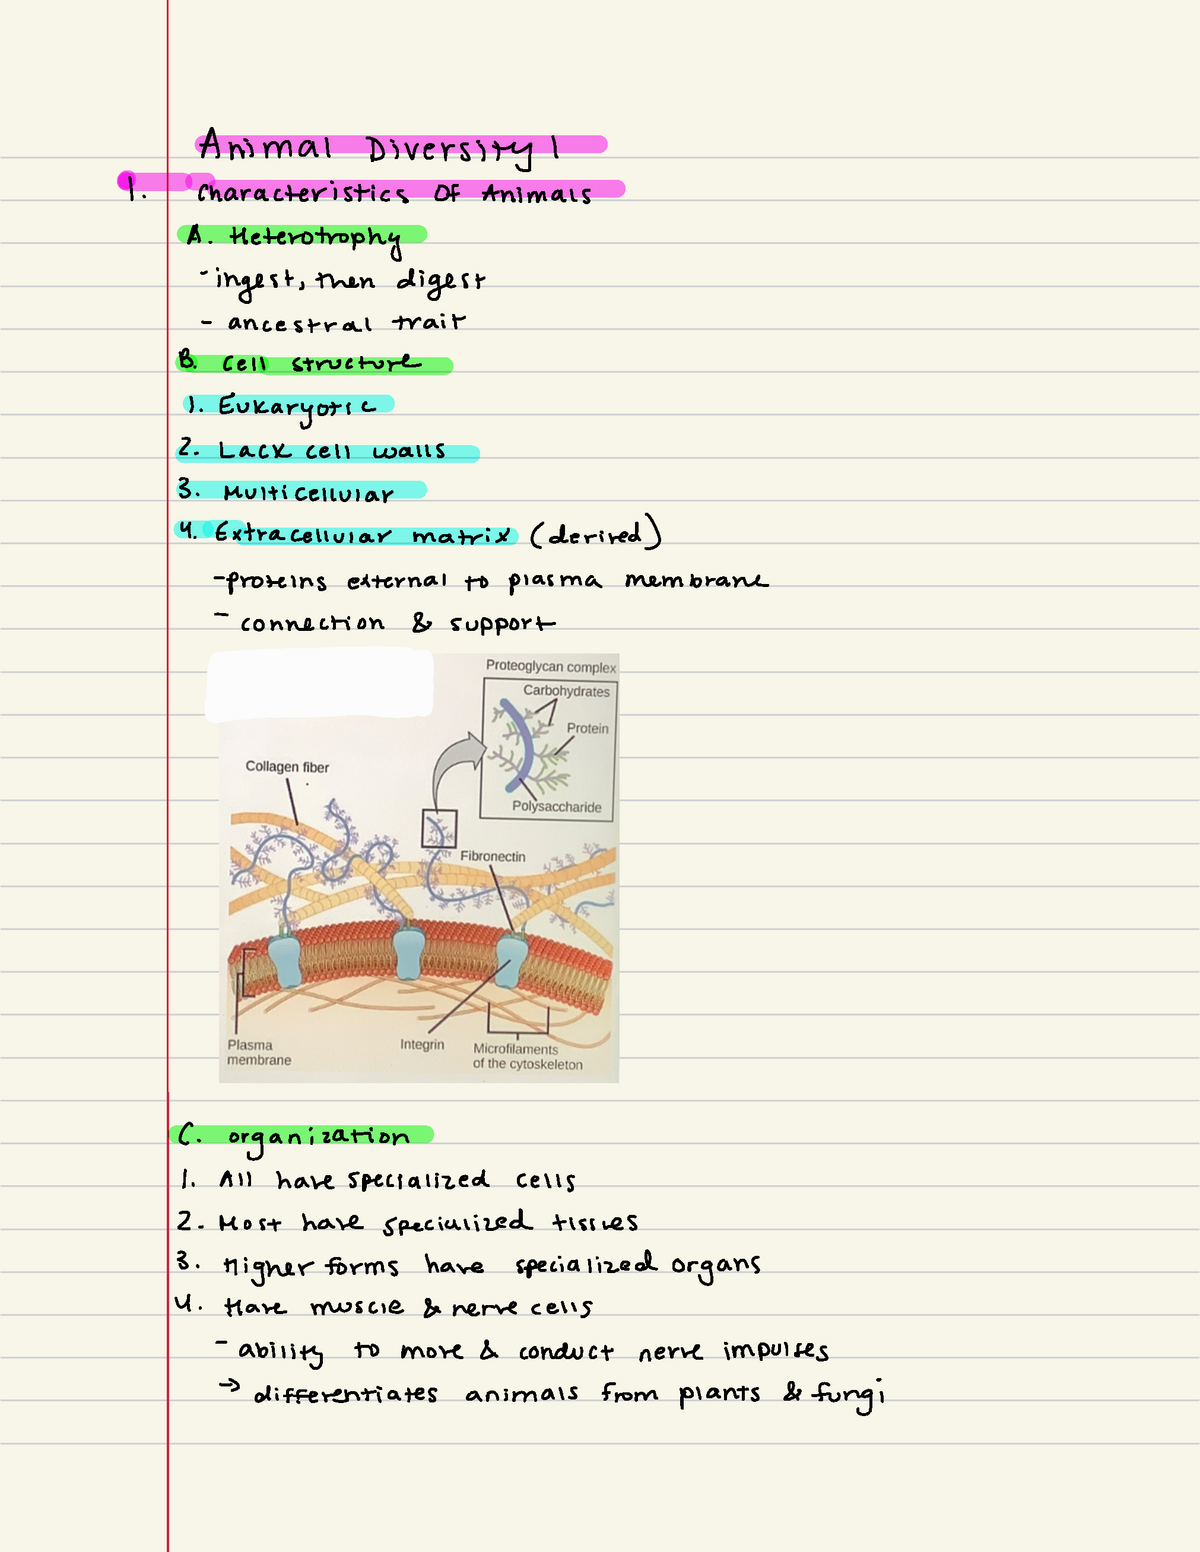 Animal Diversity 1
1. Characteristics Of Animals
A. Heterotrophy
- ingest, then digest
- ancestral trait
B. Cell structure
1. Eukaryotic
2. Lack cell walls
3. Multicellular
4. Extracellular matrix (derived)
- proteins external to plasma membrane
- connection & support
Proteoglycan complex
Carbohydrates
Protein
Polysaccharide
Collagen fiber
Fibronectin
Plasma
membrane
Integrin
Microfilaments
of the cytoskeleton
C. organization
1. All have specialized cells
2. Most have specialized tissues
3. Higher forms have specialized organs
4. Have muscle & nerve cells
- ability to move & conduct nerve impulses
→ differentiates animals from plants & fungi